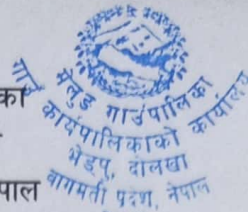 का
पाल
मेलुङ गाउँपालिका
गाउँ कार्यपालिकाको कार्यालय
भेडपु, दोलखा
वागमती प्रदेश, नेपाल